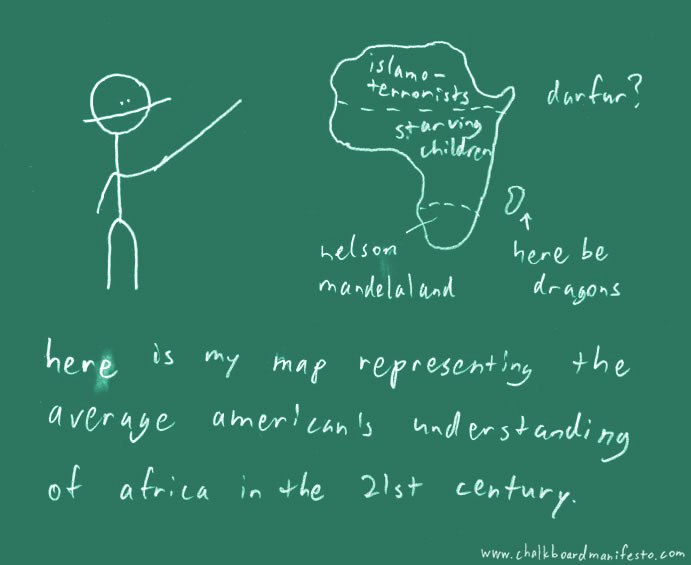 islamo-
terrorists
darfur?
starving
children
nelson
mandelaland
here be
dragons
here is my map representing the
average american's understanding
of africa in the 21st century.
www.chalkboardmanifesto.com